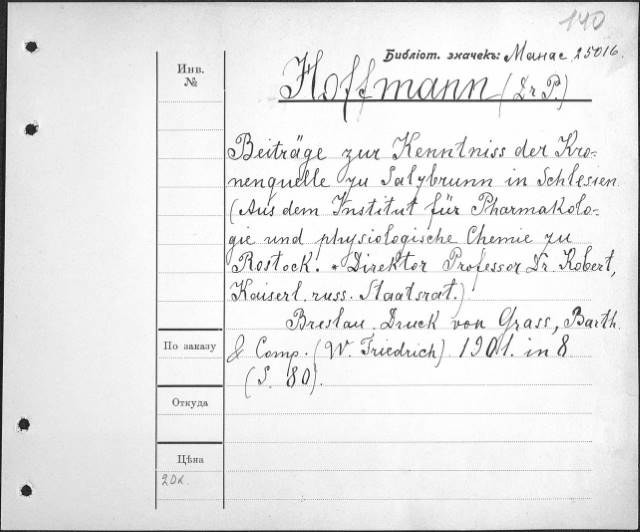 140
Библіот. значекъ: Манас 25016.
Инв.
№
Hoffmann (Dr P.)
Beiträge zur Kenntniss der Kro-
nenquelle zu Salzbrunn in Schlesien
(Aus dem Institut für Pharmakolo-
gie und physiologische Chemie zu
Rostock. * Direktor Professor Dr. Kobert,
Kaiserl. russ. Staatsrat.)
Breslau. Druck von Grass, Barth
По заказу
& Comp. (W. Friedrich) 1901. in 8
(S. 80).
Откуда
Цѣна
20к.